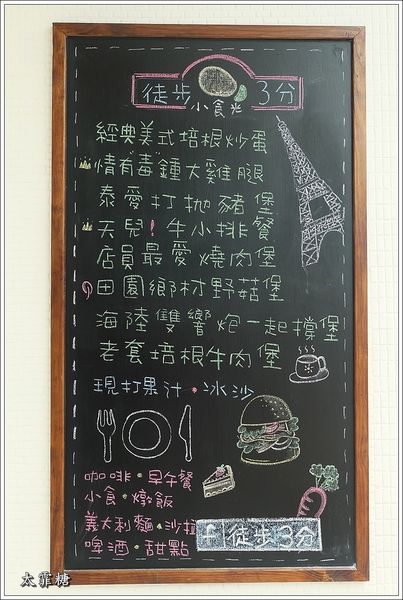 徒步 小食光 3分
經典美式培根炒蛋
情有"毒"鍾大雞腿
泰愛打拋豬堡
天兒!牛小排餐
店員最愛燒肉堡
田園鄉村野菇堡
海陸雙響炮一起擋堡
老套培根牛肉堡
現打果汁•冰沙
咖啡•早午餐
小食•燉飯
義大利麵•沙拉
啤酒•甜點
徒步3分
太霏糖